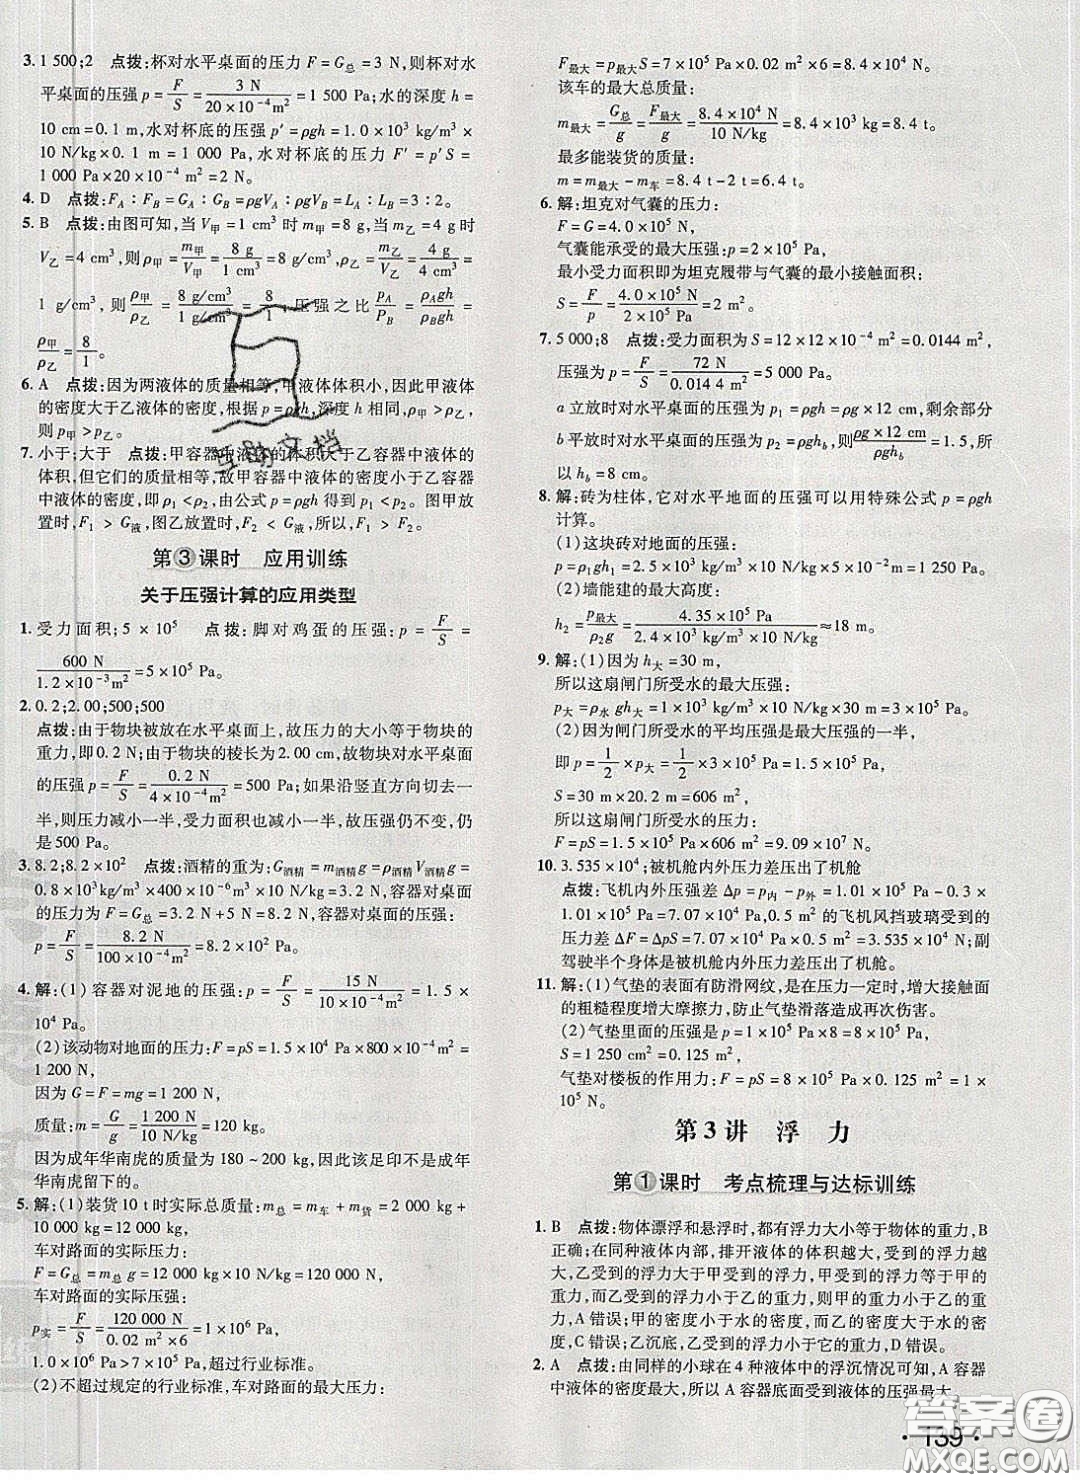 3. 1 500;2 点拨:杯对水平桌面的压力 F = G总 = 3 N,则杯对水
平桌面的压强 p = F/S = 3 N/(20×10⁻⁴ m²) = 1 500 Pa;水的深度 h =
10 cm = 0.1 m,水对杯底的压强 p′ = ρgh = 1.0×10³ kg/m³ ×
10 N/kg×0.1 m = 1 000 Pa,水对杯底的压力 F′ = p′S =
1 000 Pa×20×10⁻⁴ m² = 2 N。
4. D 点拨:F_A : F_B = G_A : G_B = ρgV_A : ρgV_B = L_A : L_B = 3 : 2。
5. B 点拨:由图可知,当 V甲 = 1 cm³ 时 m甲 = 8 g,当 m乙 = 4 g 时
V乙 = 4 cm³,则 ρ甲 = m甲/V甲 = 8 g/1 cm³ = 8 g/cm³,ρ乙 = m乙/V乙 = 4 g/4 cm³ =
1 g/cm³,则 ρ甲/ρ乙 = (8 g/cm³)/(1 g/cm³) = 8/1 压强之比 p_A/p_B = ρ_A gh/ρ_B gh =
ρ甲/ρ乙 = 8/1。
6. A 点拨:因为两液体的质量相等,甲液体体积小,因此甲液体
的密度大于乙液体的密度,根据 p = ρgh,深度 h 相同,ρ甲 > ρ乙,
则 p甲 > p乙。
7. 小于;大于 点拨:甲容器中液体的体积大于乙容器中液体的
体积,但它们的质量相等,故甲容器中液体的密度小于乙容器
中液体的密度,即 ρ₁ < ρ₂,由公式 p = ρgh 得到 p₁ < p₂。图甲放
置时,F₁ > G液,图乙放置时,F₂ < G液,所以,F₁ > F₂。
第③课时 应用训练
关于压强计算的应用类型
1. 受力面积;5 × 10⁵ 点拨:脚对鸡蛋的压强:p = F/S =
600 N/(1.2×10⁻³ m²) = 5×10⁵ Pa。
2. 0.2;2.00;500;500
点拨:由于物块被放在水平桌面上,故压力的大小等于物块的
重力,即 0.2 N;由于物块的棱长为 2.00 cm,故物块对水平桌面
的压强 p = F/S = 0.2 N/(4×10⁻⁴ m²) = 500 Pa;如果沿竖直方向切去一
半,则压力减小一半,受力面积也减小一半,故压强仍不变,仍
是 500 Pa。
3. 8.2;8.2×10² 点拨:酒精的重为:G酒精 = m酒精g = ρ酒精V酒精g =
0.8×10³kg/m³×400×10⁻⁶ m³×10 N/kg = 3.2 N,容器对桌面
的压力为 F = G总 = 3.2 N+5 N = 8.2 N,容器对桌面的压强:
p = F/S = 8.2 N/(100×10⁻⁴ m²) = 8.2×10² Pa。
4. 解:(1)容器对泥地的压强:p = F/S = 15 N/(10×10⁻⁴ m²) = 1.5×
10⁴ Pa。
(2)该动物对地面的压力:F = pS = 1.5×10⁴ Pa×800×10⁻⁴ m² =
1 200 N,
因为 G = F = mg = 1 200 N,
质量:m = G/g = 1 200 N/10 N/kg = 120 kg。
因为成年华南虎的质量为 180~200 kg,因此该足印不是成年
华南虎留下的。
5. 解:(1)装货 10 t 时实际总质量:m总 = m车 + m货 = 2 000 kg+
10 000 kg = 12 000 kg,
车对路面的实际压力:
F = G总 = m总g = 12 000 kg×10 N/kg = 120 000 N,
车对路面的实际压强:
p实 = F/S = 120 000 N/(0.02 m²×6) = 1×10⁶ Pa,
1.0×10⁶ Pa>7×10⁵ Pa,超过行业标准。
(2)不超过规定的行业标准,车对路面的最大压力:
F最大 = p最大S = 7×10⁵ Pa×0.02 m²×6 = 8.4×10⁴ N。
该车的最大总质量:
m最大 = G总/g = F最大/g = 8.4×10⁴ N/10 N/kg = 8.4×10³ kg = 8.4 t。
最多能装货的质量:
m = m最大 - m车 = 8.4 t-2 t = 6.4 t。
6. 解:坦克对气囊的压力:
F = G = 4.0×10⁵ N,
气囊能承受的最大压强:p = 2×10⁵ Pa,
最小受力面积即为坦克履带与气囊的最小接触面积:
S = F/p = 4.0×10⁵ N/2×10⁵ Pa = 2 m²。
7. 5 000;8 点拨:受力面积为 S = 12×12×10⁻⁴ m² = 0.014 4 m²,
压强为 p = F/S = 72 N/0.014 4 m² = 5 000 Pa。
a 立放时对水平桌面的压强为 p₁ = ρgh = ρg×12 cm,剩余部分
b 平放时对水平桌面的压强为 p₂ = ρgh_b,则 ρg×12 cm/ρgh_b = 1.5,所
以 h_b = 8 cm。
8. 解:砖为柱体,它对水平地面的压强可以用特殊公式 p = ρgh
计算。
(1)这块砖对地面的压强:
p = ρ₁gh₁ = 2×10³ kg/m³×10 N/kg×0.06 m = 1 200 Pa。
(2)墙能建的最大高度:
h₂ = p最大/ρ₂g = 4.35×10⁵ Pa/(2.4×10³ kg/m³×10 N/kg) ≈ 18 m。
9. 解:(1)因为 h大 = 30 m,
所以这扇闸门所受水的最大压强:
p大 = ρ水gh大 = 1×10³ kg/m³×10 N/kg×30 m = 3×10⁵ Pa。
(2)因为闸门所受水的平均压强是最大压强的一半,
即 p = 1/2×p大 = 1/2×3×10⁵ Pa = 1.5×10⁵ Pa,
S = 30 m×20.2 m = 606 m²,
所以这扇闸门所受水的压力:
F = pS = 1.5×10⁵ Pa×606 m² = 9.09×10⁷ N。
10. 3.535×10⁴;被机舱内外压力差压出了机舱
点拨:飞机内外压强差 Δp = p内 - p外 = 1.01×10⁵ Pa-0.3×
1.01×10⁵ Pa = 7.07×10⁴ Pa,0.5 m² 的飞机风挡玻璃受到的
压力差 ΔF = ΔpS = 7.07×10⁴ Pa×0.5 m² = 3.535×10⁴ N;副
驾驶半个身体是被机舱内外压力差压出了机舱。
11. 解:(1)气垫的表面有防滑网纹,是在压力一定时,增大接触面
的粗糙程度增大摩擦力,防止气垫滑落造成再次伤害。
(2)气垫里面的压强是 p = 1×10⁵ Pa×8 = 8×10⁵ Pa,
S = 1 250 cm² = 0.125 m²,
气垫对楼板的作用力:F = pS = 8×10⁵ Pa×0.125 m² = 1×
10⁵ N。
第 3 讲 浮 力
第①课时 考点梳理与达标训练
1. B 点拨:物体漂浮和悬浮时,都有浮力大小等于物体的重力,B
正确;在同种液体内部,排开液体的体积越大,受到的浮力越
大,乙受到的浮力大于甲受到的浮力,甲受到的浮力等于甲的
重力,而乙受到的浮力小于乙的重力,则甲的重力小于乙的重
力,A 错误;甲的密度小于水的密度,而乙的密度大于水的密
度,C 错误;乙沉底,乙受到的浮力小于它的重力,D 错误。
2. A 点拨:由同样的小球在 4 种液体中的浮沉情况可知,A 容器
中液体的密度最大,所以 A 容器底面受到液体的压强最大。
· 139 ·
互助文档
答案圈
MXQE.COM